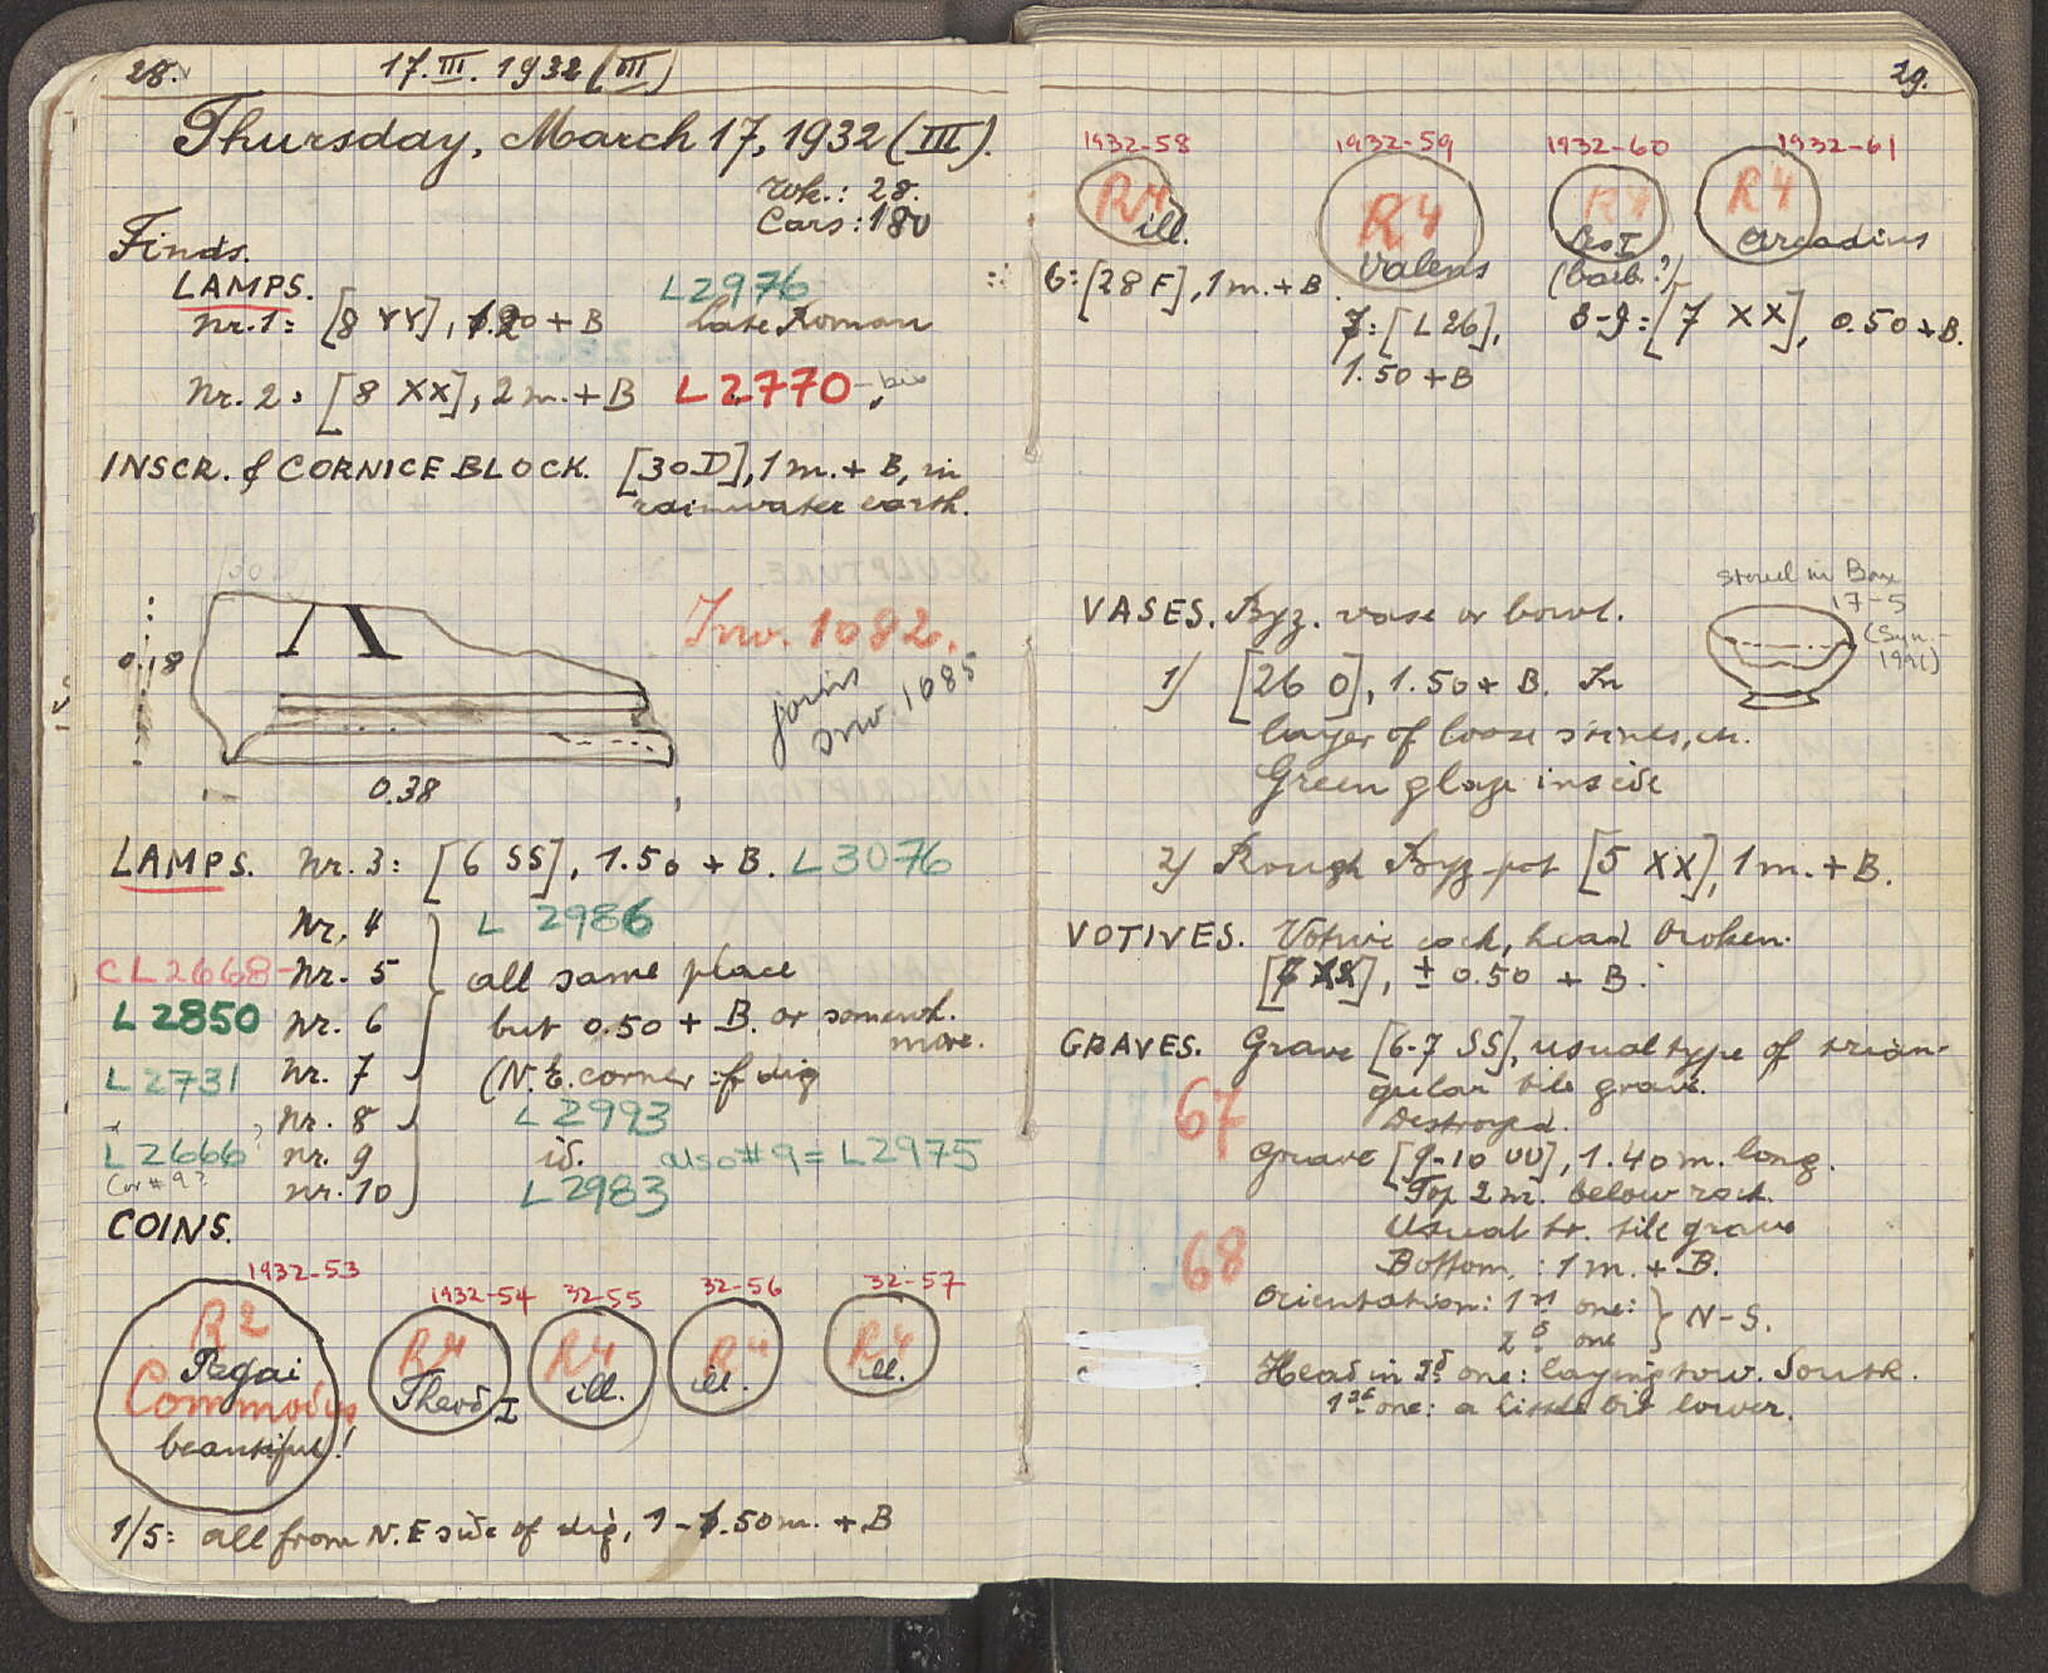 28.
17.III.1932 (III)
Thursday, March 17, 1932 (III).
Wk.: 28.
Cars: 180
Finds.
LAMPS.
L2976
Nr. 1: [8 YY], 1.20 + B Late Roman
Nr. 2: [8 XX], 2 m. + B L2770-bis
INSCR. & CORNICE BLOCK. [30 D], 1 m. + B, in
rainwater earth.
Λ
0.18
0.38
Inv. 1082.
joins
Inv. 1085
LAMPS. Nr. 3: [6 SS], 1.50 + B. L3076
Nr. 4 L 2986
CL2668- Nr. 5 all same place
L 2850 Nr. 6 but 0.50 + B. or somewh.
more.
L 2731 Nr. 7 (N.E. corner of dig
Nr. 8 L 2993
L 2666? Nr. 9 id. also #9 = L2975
(or #9?
Nr. 10 L2983
COINS.
1932-53
R2
Pegai
Commodus
beautiful!
1932-54
R4
Theod I
32-55
R4
ill.
32-56
R4
ill.
32-57
R4
ill.
1/5: all from N.E side of dig, 1-1.50 m. + B
29.
1932-58
R4
ill.
6: [28 F], 1 m. + B.
1932-59
R4
Valens
7: [L 26],
1.50 + B
1932-60
R4
Leo I
(barb.?)
1932-61
R4
Arcadius
8-9: [7 XX], 0.50 + B.
VASES. Byz. vase or bowl.
Stored in Box
17-5
1) [26 O], 1.50 + B. In
layer of loose stones,
Green glaze inside
2) Rough Byz. pot [5 XX], 1 m. + B.
VOTIVES. Votive cock, head broken.
[7 XX], ± 0.50 + B.
GRAVES. Grave [6-7 SS], usual type of trian-
gular tile grave.
67
Destroyed.
Grave [9-10 UU], 1.40 m. long.
Top 2 m. below rock.
Usual tr. tile grave
68
Bottom: 1 m. + B.
Orientation: 1st one: } N-S.
2d one
Head in 2d one: laying tow. South.
1st one: a little bit lower.